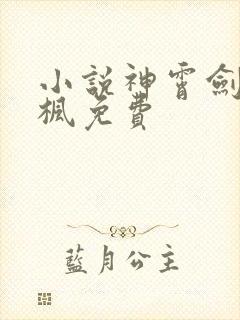 小說神霄劍
楓免費
藍月公主